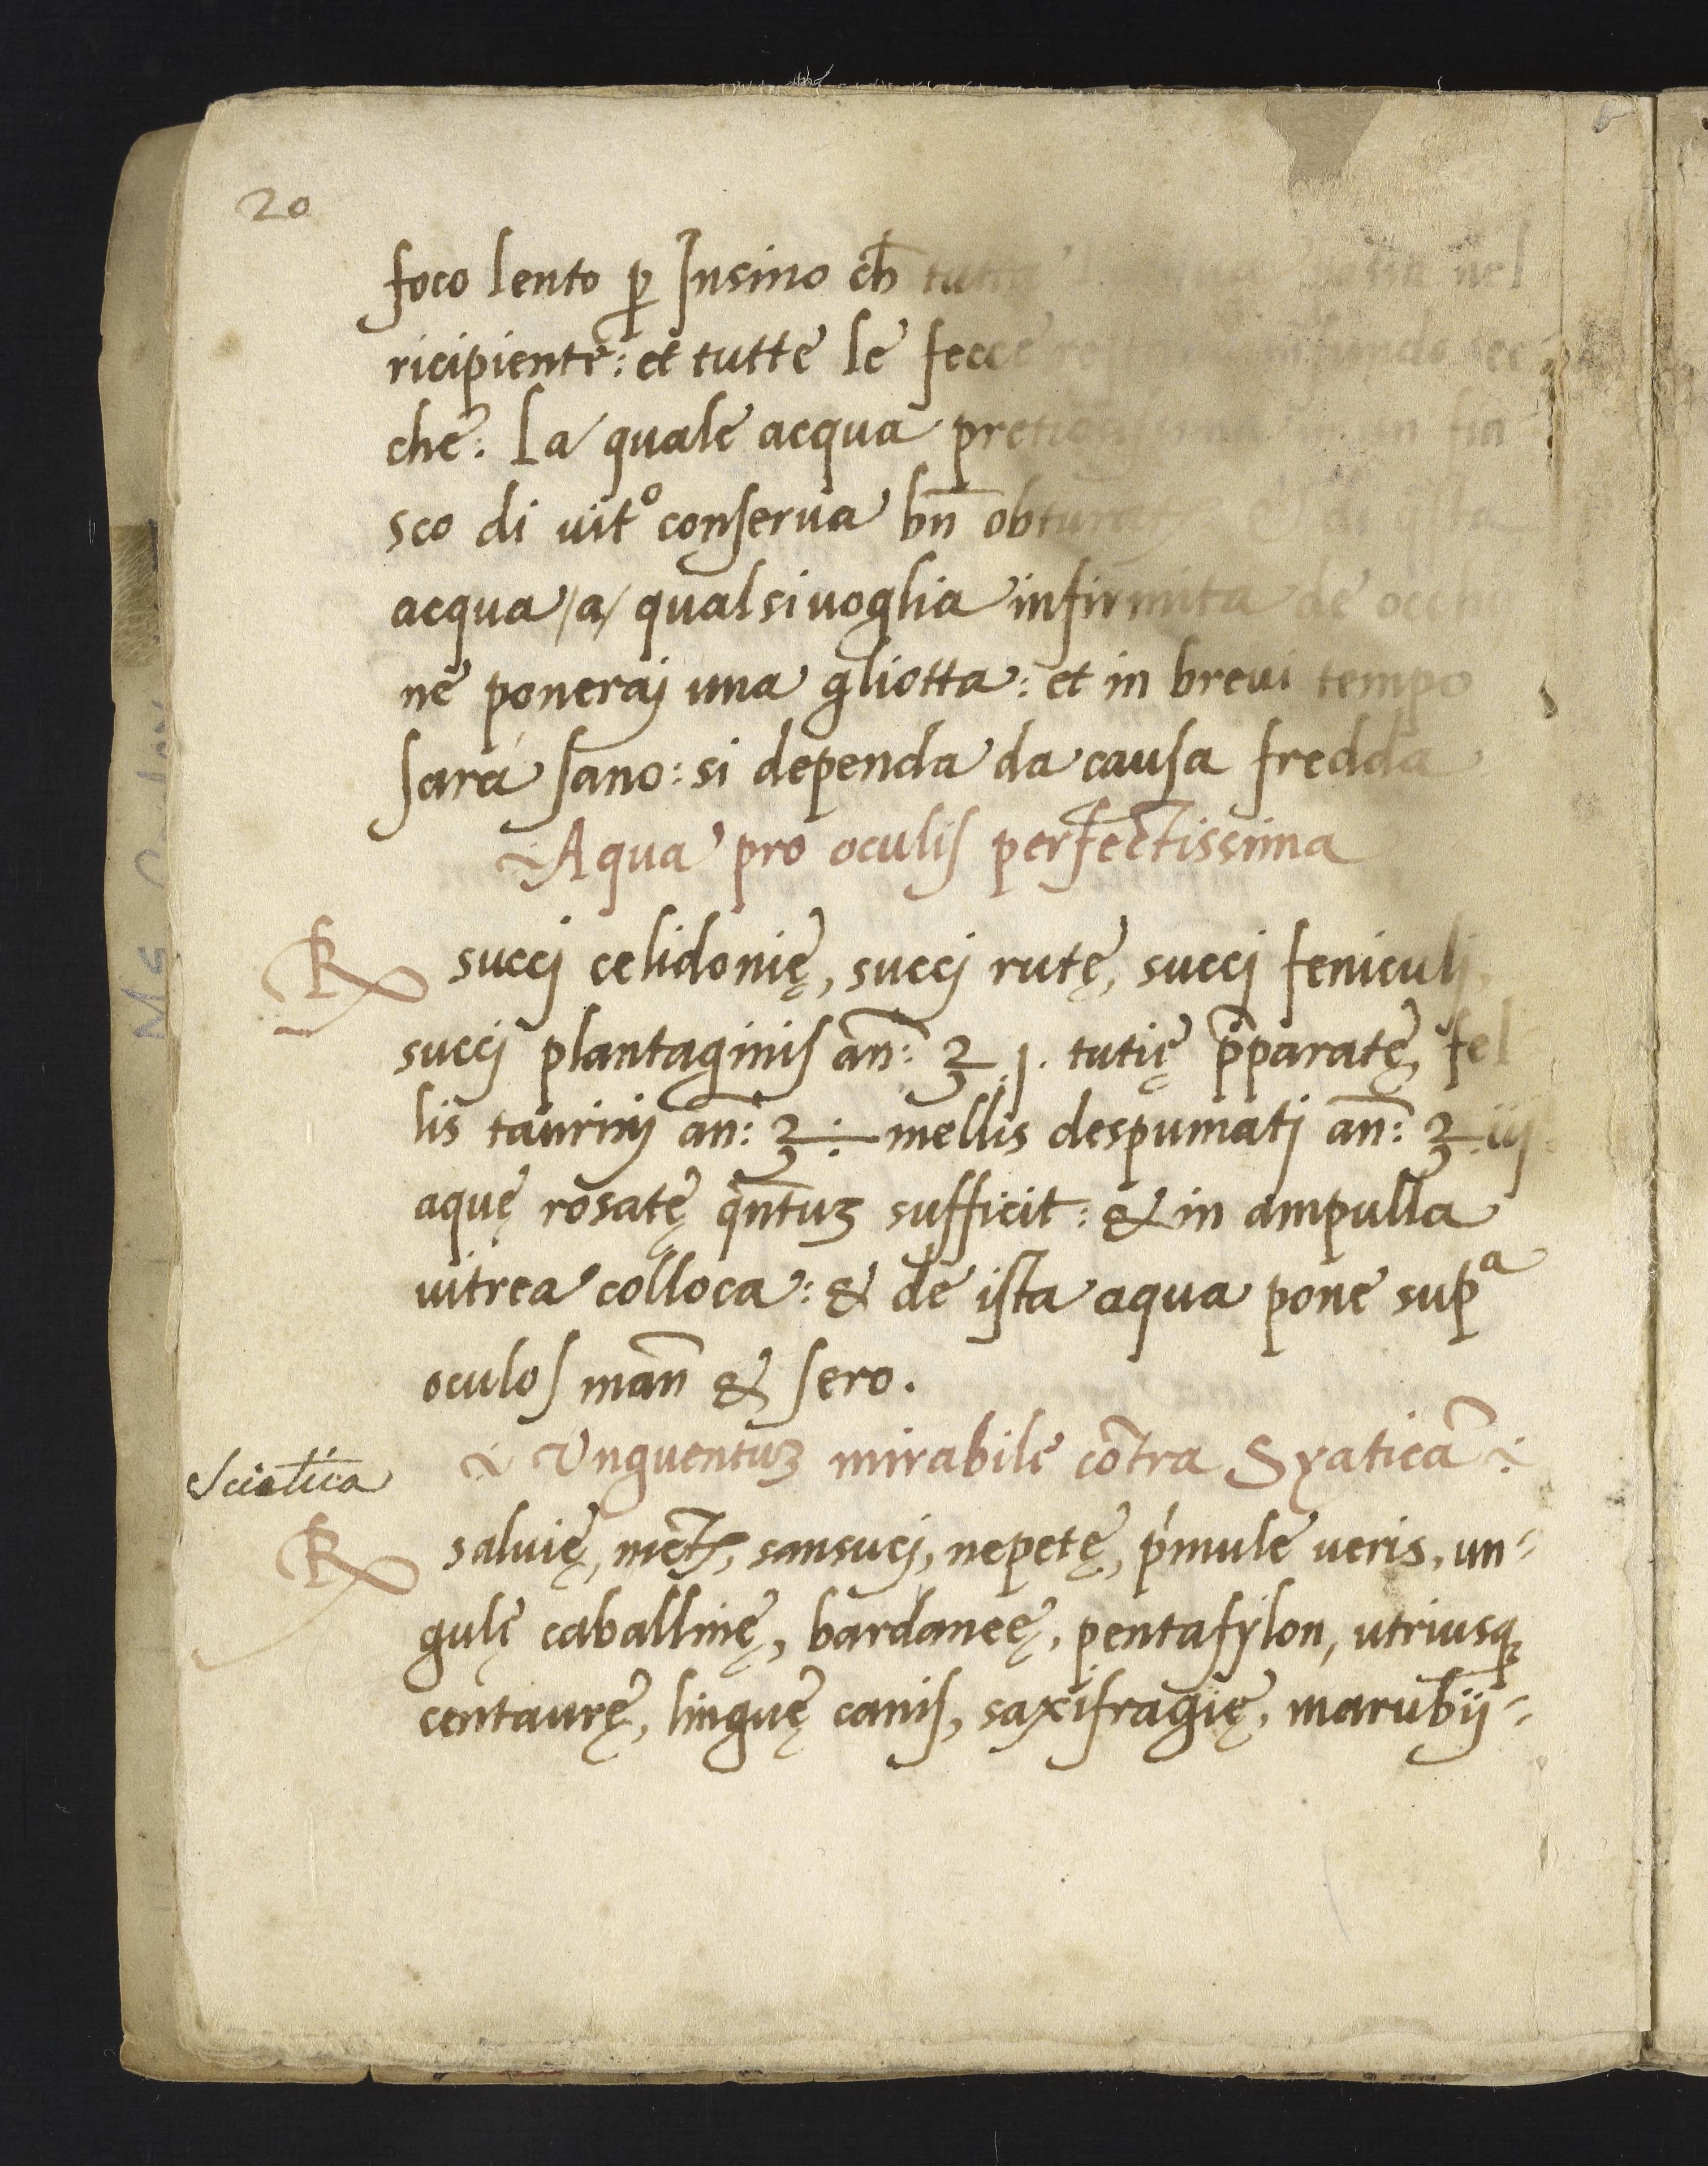 20
foco lento ꝑ Insino ch̄ tutta nel
ricipiente: et tutte le fecce sec
che: La quale acqua pretiosissima in un fia
sco di uitº conserua bn̄ obturato di
acqua /a/ qualsiuoglia infirmita de occh
ne poneraj una gliotta: et in breui tempo
sara sano: si dependa da causa fredda
Aqua pro oculis perfectissima
℞ succj celidonię, succj rutę, succj feniculj,
succj plantaginis an̄: ʒ j. tutię p̄paratę, fel
lis taurinj an̄: ʒ ÷ mellis despumatj an̄: ʒ iij
aquę rosatę qn̄tuʒ sufficit: & in ampulla
uitrea colloca: & de ista aqua pone supª
oculos man̄ & sero.
Unguentuʒ mirabile cōtra Syaticā
Sciatica
℞ saluię, sansucj, nepetę, p'mule ueris, un-
gulę caballinę, bardaneę, pentafylon, utriusqꝫ
centaurę, linguę canis, saxifragię, marubij-
MS